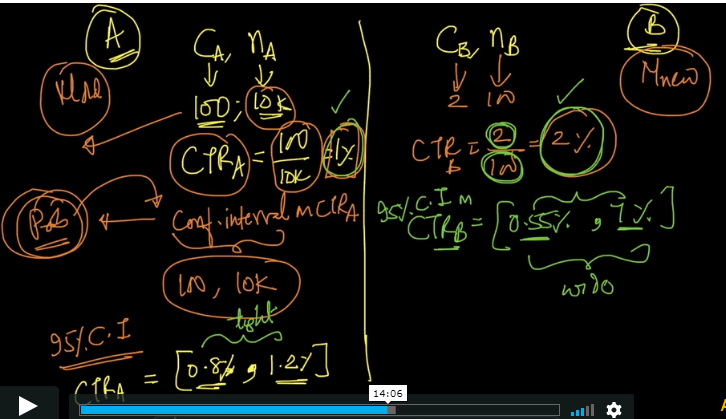 A
C_A, n_A
100; 10K
CTR_A = 100/10K = 1%
Conf. interval on CTR_A
100, 10K
tight
95% C.I
CTR_A = [0.8%, 1.2%]
B
C_B, n_B
2 100
Mnew
CTR_B = 2/100 = 2%
95% C.I
CTR_B = [0.55%, 7%]
wide
14:06